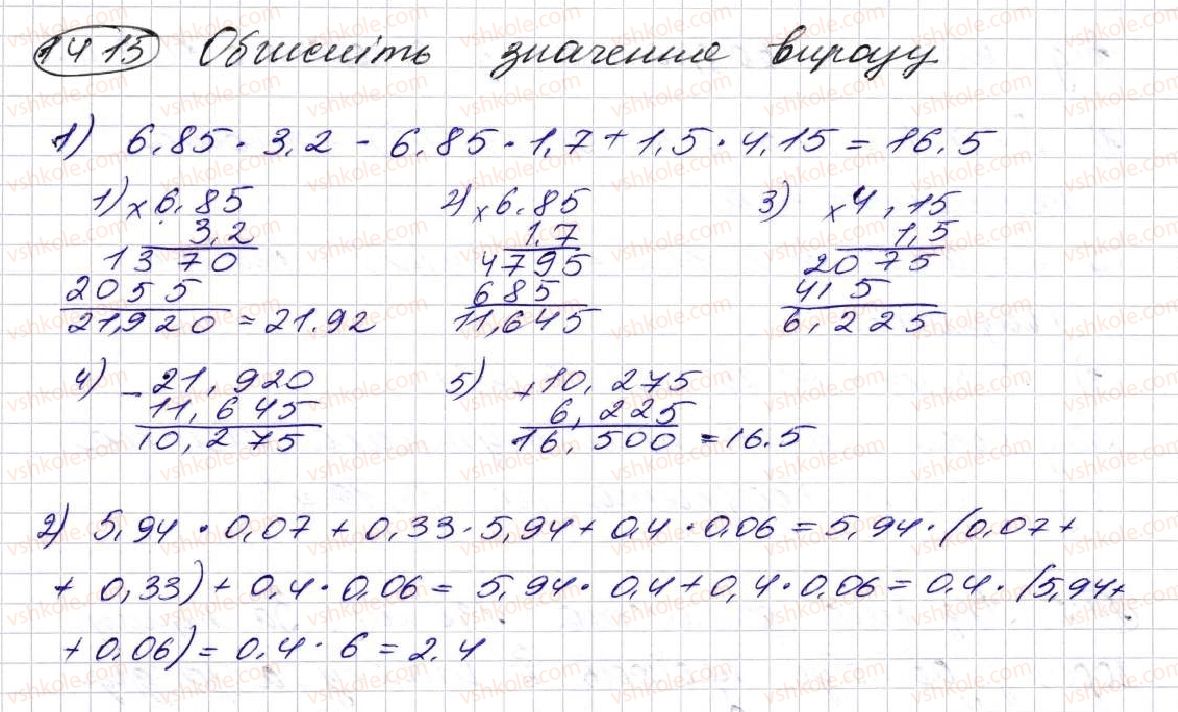 1415 Обчисліть значення виразу
1) 6.85 · 3,2 - 6.85 · 1,7 + 1,5 · 4,15 = 16.5
1) × 6.85 2) × 6.85 3) × 4,15
3,2 1,7 1,5
1370 4795 2075
2055 685 415
21,920 = 21.92 11,645 6,225
4) - 21,920 5) + 10,275
11,645 6,225
10,275 16,500 = 16.5
2) 5,94 · 0,07 + 0,33 · 5,94 + 0,4 · 0,06 = 5,94 · (0,07 +
+ 0,33) + 0,4 · 0,06 = 5,94 · 0,4 + 0,4 · 0,06 = 0.4 · (5,94 +
+ 0.06) = 0.4 · 6 = 2.4
vshkole.com